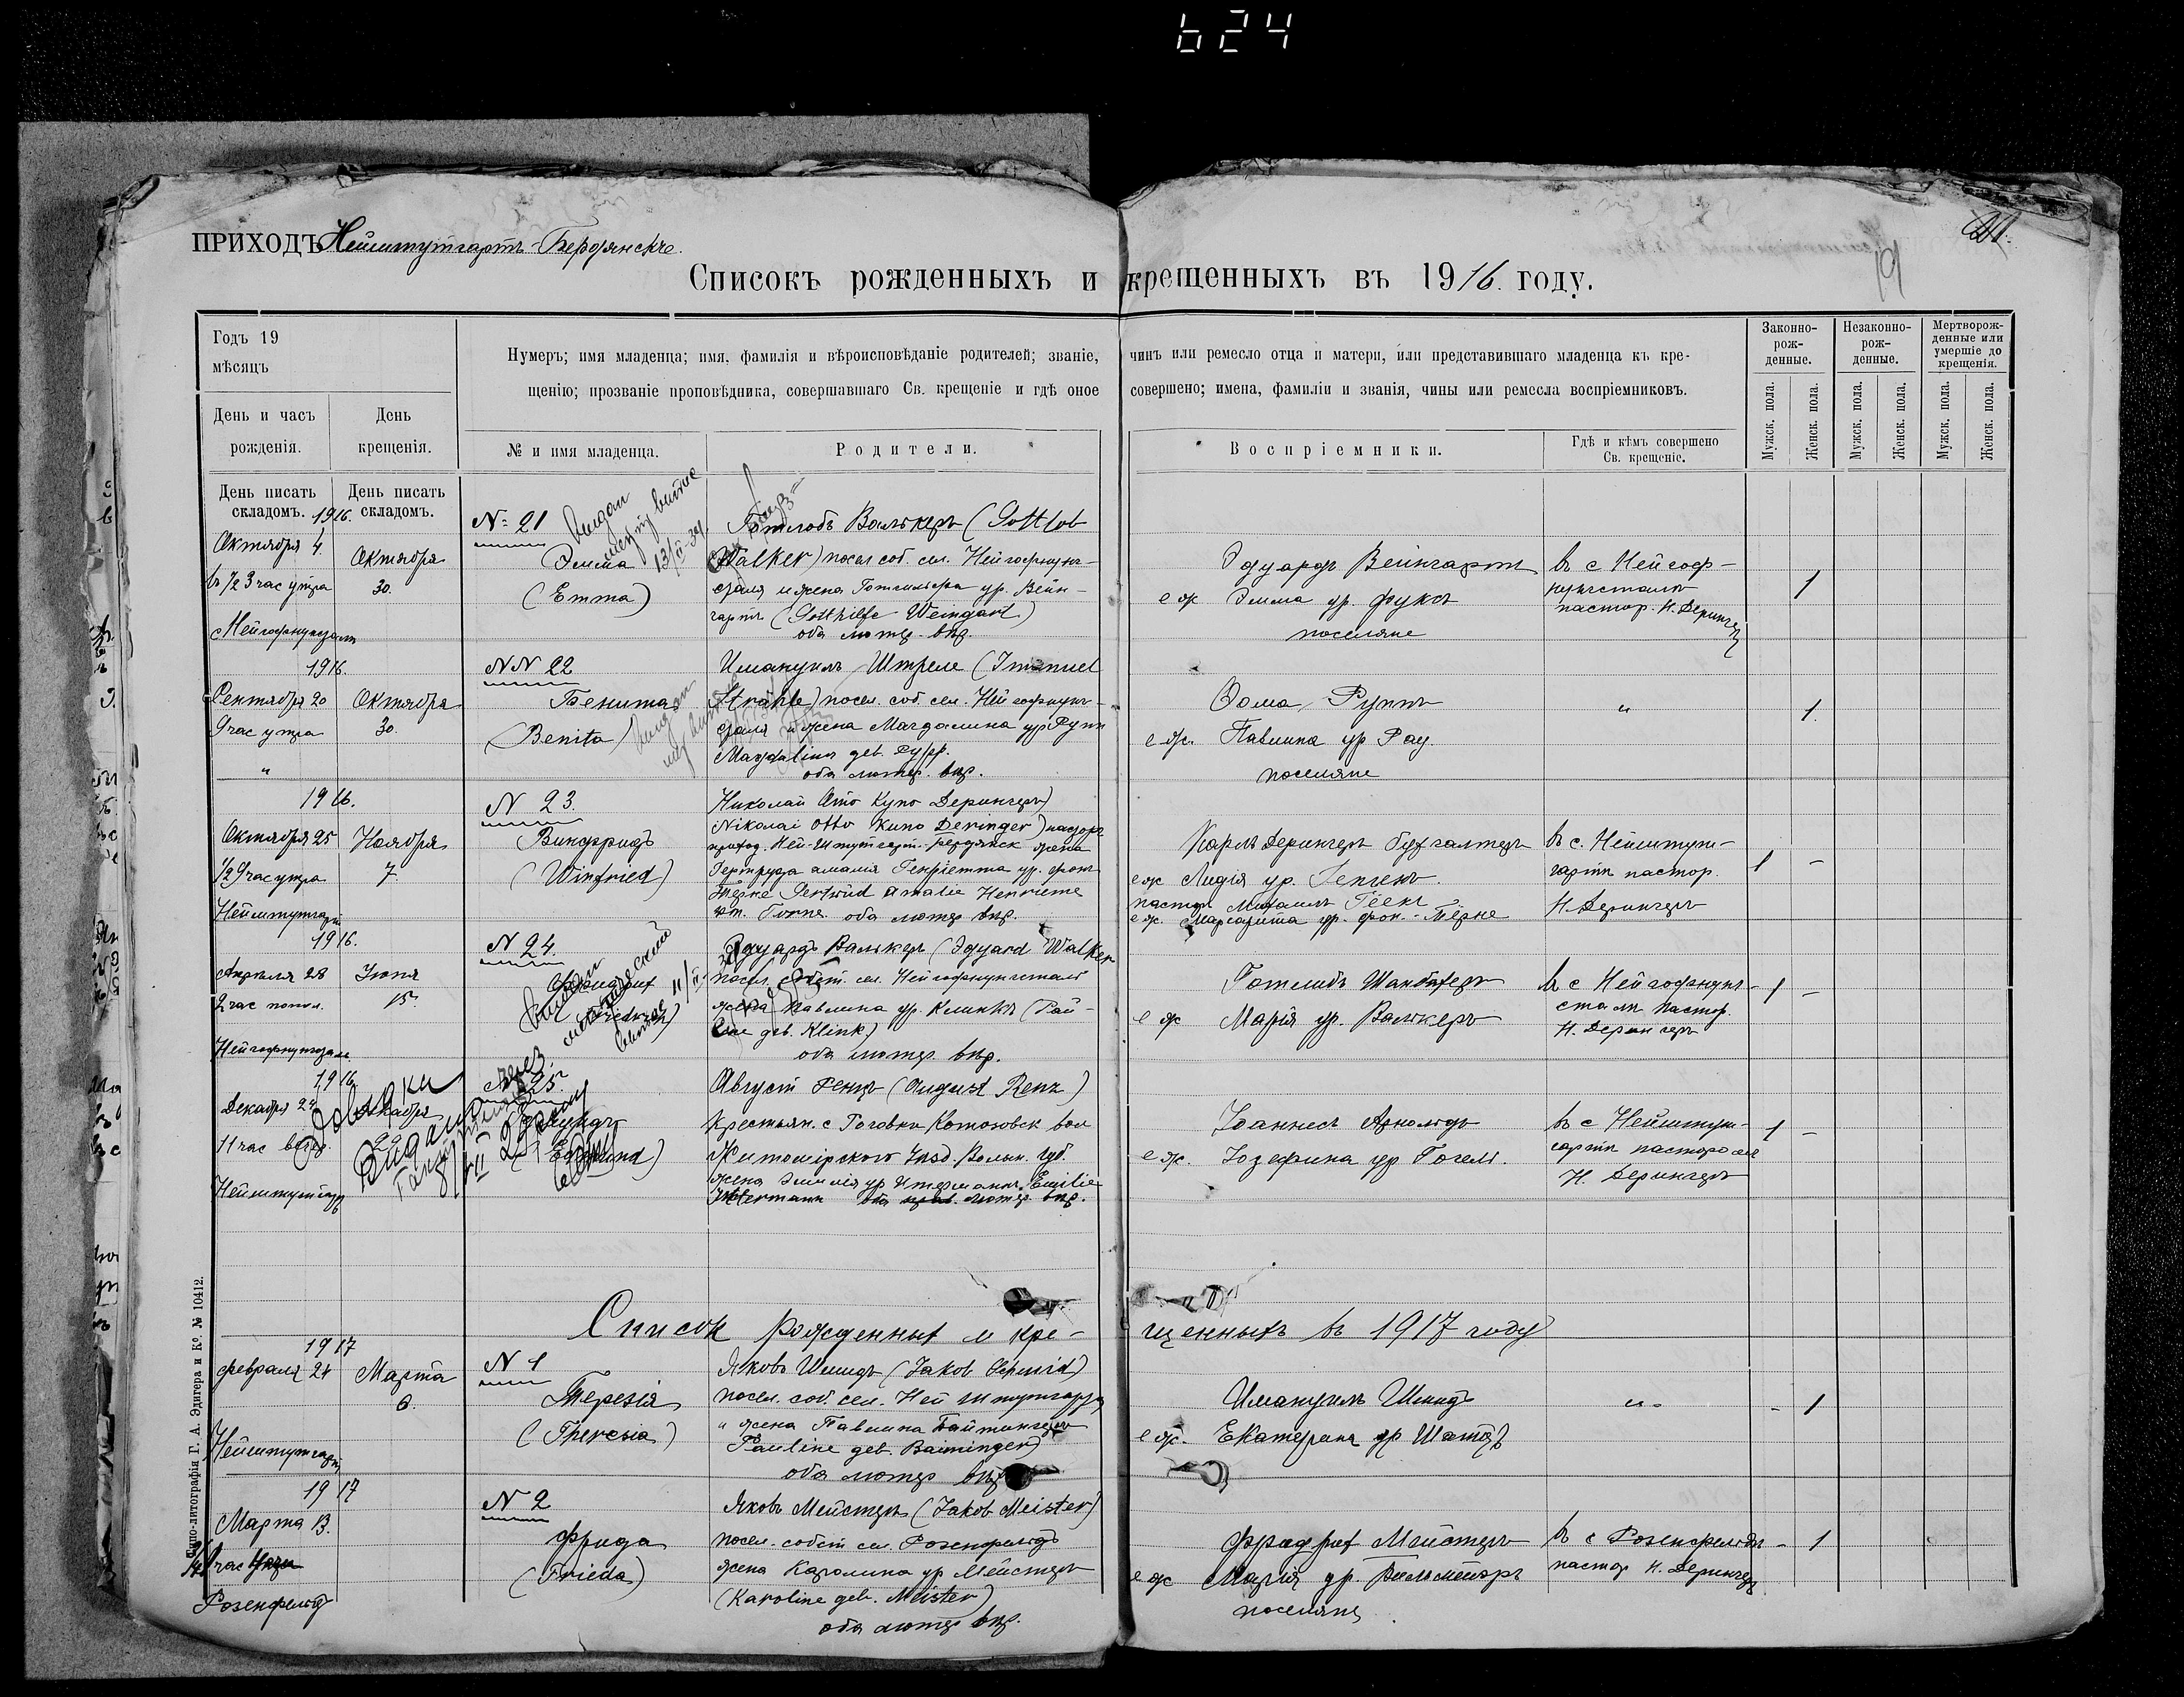 624
ПРИХОДЪ Нейштутгартъ-Бердянскъ.
21.
19
Списокъ рожденныхъ и крещенныхъ въ 1916. году.
Годъ 19
мѣсяцъ
День и часъ
рожденія.
День
крещенія.
Нумеръ; имя младенца; имя, фамилія и вѣроисповѣданіе родителей; званіе, чинъ или ремесло отца и матери, или представившаго младенца къ кре-
щенію; прозваніе проповѣдника, совершавшаго Св. крещеніе и гдѣ оное совершено; имена, фамиліи и званія, чины или ремесла воспріемниковъ.
№ и имя младенца.
Родители.
Воспріемники.
Гдѣ и кѣмъ совершено
Св. крещеніе.
Законно-
рож-
денные.
Незаконно-
рож-
денные.
Мертворож-
денные или
умершіе до
крещенія.
Мужск. пола.
Женск. пола.
Мужск. пола.
Женск. пола.
Мужск. пола.
Женск. пола.
День писать
складомъ.
День писать
складомъ.
1916.
Октября 4.
въ 1/2 3 час утра
Октября
30.
№ 21
Эмма
(Emma)
13/II-34.
Готлобъ Валькеръ (Gottlob
Walker) посел соб. сел. Нейгофнунгс-
таля и жена Готгильфа ур. Вейн-
гартъ (Gotthilfe Weingart)
оба лютер. вѣр.
Эдуардъ Вейнгартъ
е ж Эмма ур. Фуксъ
поселяне
въ с Нейгоф-
нунгсталь
пастор. Н. Дерингеръ
1
1916.
Сентября 20
9 час утра
"
Октября
30.
NN 22
Бенита
(Benita)
Имануилъ Штреле (Imanuel
Strahle) посел. соб. сел. Нейгофнунг-
сталя и жена Магдалина ур Руппъ
Magdalina geb. Rupp.
оба лютер. вѣр.
Фома Руппъ
е ж. Павлина ур Рау.
поселяне
"
1.
1916.
Октября 25
1/2 9 час утра
Нейштутгартъ
Ноября
7.
N 23.
Винфридъ
(Winfried)
Николай Отто Куно Дерингеръ)
Nikolai Otto Kuno Deringer) пасторъ
приход. Ней-Штутгарт-Бердянск жена
Гертруда Амалія Генріетта ур. фонъ
Тёрне Gertrud Amalie Henriette
оба лютер вѣр.
Карлъ Дерингеръ бухгалтеръ
е ж Лидія ур.
пастор Михаилъ
е ж. Маргарита ур. фон. Тёрне
въ с. Нейштут-
гартъ пастор.
Н. Дерингеръ
1 -
1916.
Апреля 28
2 час попол.
Нейгофнунгсталь
Июня
15.
N 24.
Эдуардъ Валькеръ (Эдуard Walker
посел. собст. сел. Нейгофнунгсталь
жена Павлина ур. Клинкъ (Pau-
line geb. Klink)
оба лютер. вѣр.
е ж Марія ур. Валькеръ
въ с Нейгофнунг-
сталь пастор.
Н. Дерингеръ
1 -
1916
Декабря 24
11 час вечер.
Нейштутгартъ
Декабря
N 25.
(Edmund)
Августъ Ренцъ (August Renz)
жена Эмилія ур Итерманнъ Emilie
оба лютер. вѣр.
Іоаннесъ Арнольдъ
е ж. Іозефина ур Гогель.
въ с Нейштут-
гартъ пасторомъ
Н. Дерингеръ
1 -
Списокъ рожденныхъ и кре-
щенныхъ въ 1917 году
1917
Февраля 24
Нейштутгартъ
Марта
6.
N 1
Терезія
(Theresia)
Яковъ Шмидъ (Jakob Schmid)
посел. соб. сел. Нейштутгардъ
и жена Павлина Байтингеръ
Pauline geb. Baitinger)
оба лютер вѣр
Имануилъ Шмидъ
е ж. Екатерина ур Шатцъ
"
- 1
1917
Марта 13.
Розенфельдъ
N 2
Фрида
(Frieda)
Яковъ Мейстеръ (Jakob Meister)
посел. собст сел. Розенфельдъ
жена Каролина ур Мейстеръ
(Karoline geb. Meister)
оба лютер вѣр.
Фридрих Мейстеръ
е ж Марія ур.
поселяне
въ с Розенфельдъ
пастор Н. Дерингеръ
- 1
Типо-литографія Г. А. Эдигера и К°. № 10412.